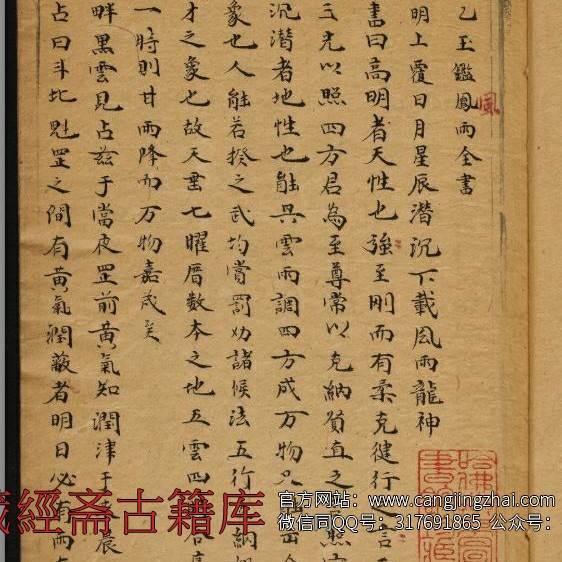 乙玉鑑風雨全書
風
明上覆日月星辰潛沉下載風雨龍神
書曰高明者天性也強至剛而有柔克健行言
三光以照四方君為至尊常以克納質直之照
沉潛者地性也能具雲雨調四方成万物只出
象也人能若揆之武均賞罰功諸候法五行綱
才之象也故天垂七曜曆数本之地五雲四
一時則甘雨降而万物嘉成矣
畔黑雲見占兹于當夜罡前黃氣知潤津于晨
占曰斗北魁罡之間有黃氣潤蔽者明日必有雨
藏經斋古籍库
官方网站：www.cangjingzhai.com
微信同QQ号：317691865 公众号：